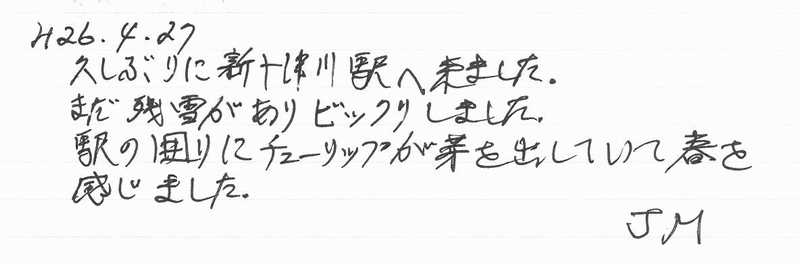 H26.4.27
久しぶりに新十津川駅へ来ました。
まだ残雪がありビックリしました。
駅の囲りにチューリップが芽を出していて春を
感じました。
JM